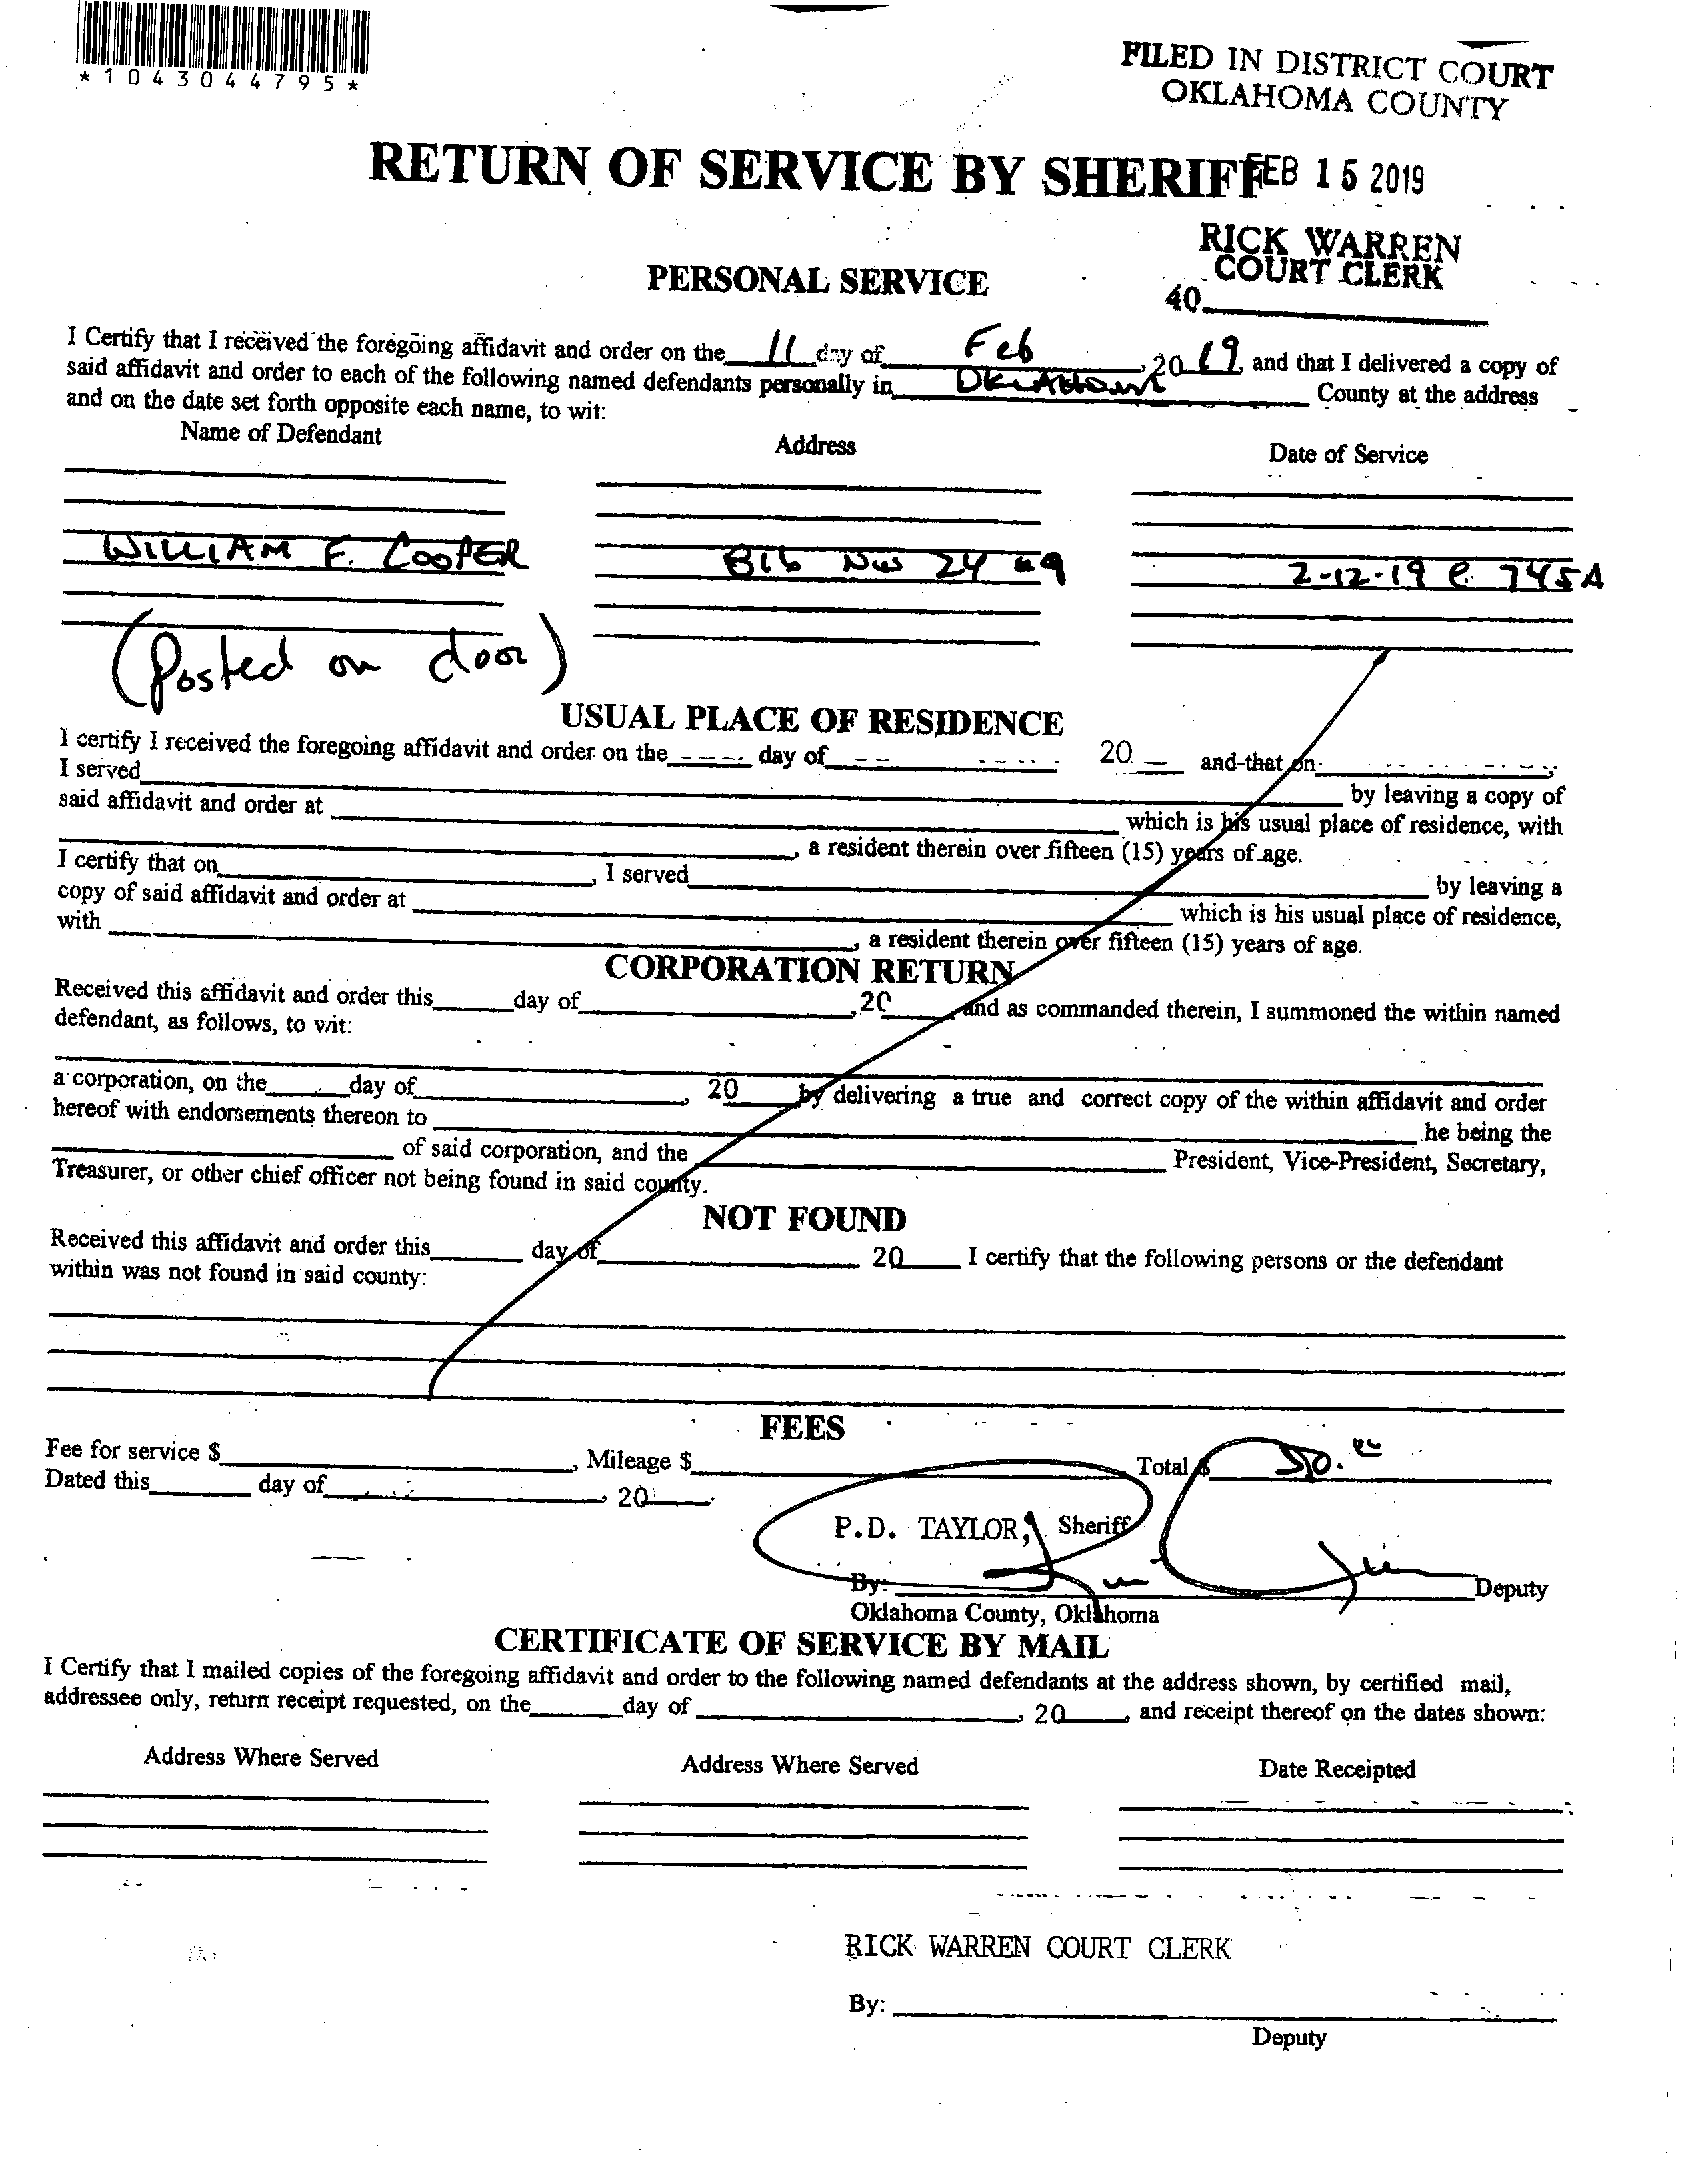 *1043044795*
FILED IN DISTRICT COURT
OKLAHOMA COUNTY
RETURN OF SERVICE BY SHERIFF
FEB 15 2019
RICK WARREN
COURT CLERK
40
PERSONAL SERVICE
I Certify that I received the foregoing affidavit and order on the 11 day of Feb, 2019 and that I delivered a copy of
said affidavit and order to each of the following named defendants personally in OKLAHOMA County at the address
and on the date set forth opposite each name, to wit:
Name of Defendant Address Date of Service
WILLIAM F. COOPER 816 NW 24 2-12-19 @ 745A
(Posted on door)
USUAL PLACE OF RESIDENCE
I certify I received the foregoing affidavit and order on the day of 20 and that on
I served by leaving a copy of
said affidavit and order at which is his usual place of residence, with
, a resident therein over fifteen (15) years of age.
I certify that on , I served by leaving a
copy of said affidavit and order at which is his usual place of residence,
with , a resident therein over fifteen (15) years of age.
CORPORATION RETURN
Received this affidavit and order this day of , 20 and as commanded therein, I summoned the within named
defendant, as follows, to wit:
a corporation, on the day of , 20 by delivering a true and correct copy of the within affidavit and order
hereof with endorsements thereon to he being the
of said corporation, and the President, Vice-President, Secretary,
Treasurer, or other chief officer not being found in said county.
NOT FOUND
Received this affidavit and order this day of 20 I certify that the following persons or the defendant
within was not found in said county:
FEES
Fee for service $ , Mileage $ Total $ 50.
Dated this day of , 20
P.D. TAYLOR, Sheriff
By: Deputy
Oklahoma County, Oklahoma
CERTIFICATE OF SERVICE BY MAIL
I Certify that I mailed copies of the foregoing affidavit and order to the following named defendants at the address shown, by certified mail,
addressee only, return receipt requested, on the day of , 20 , and receipt thereof on the dates shown:
Address Where Served Address Where Served Date Receipted
RICK WARREN COURT CLERK
By:
Deputy